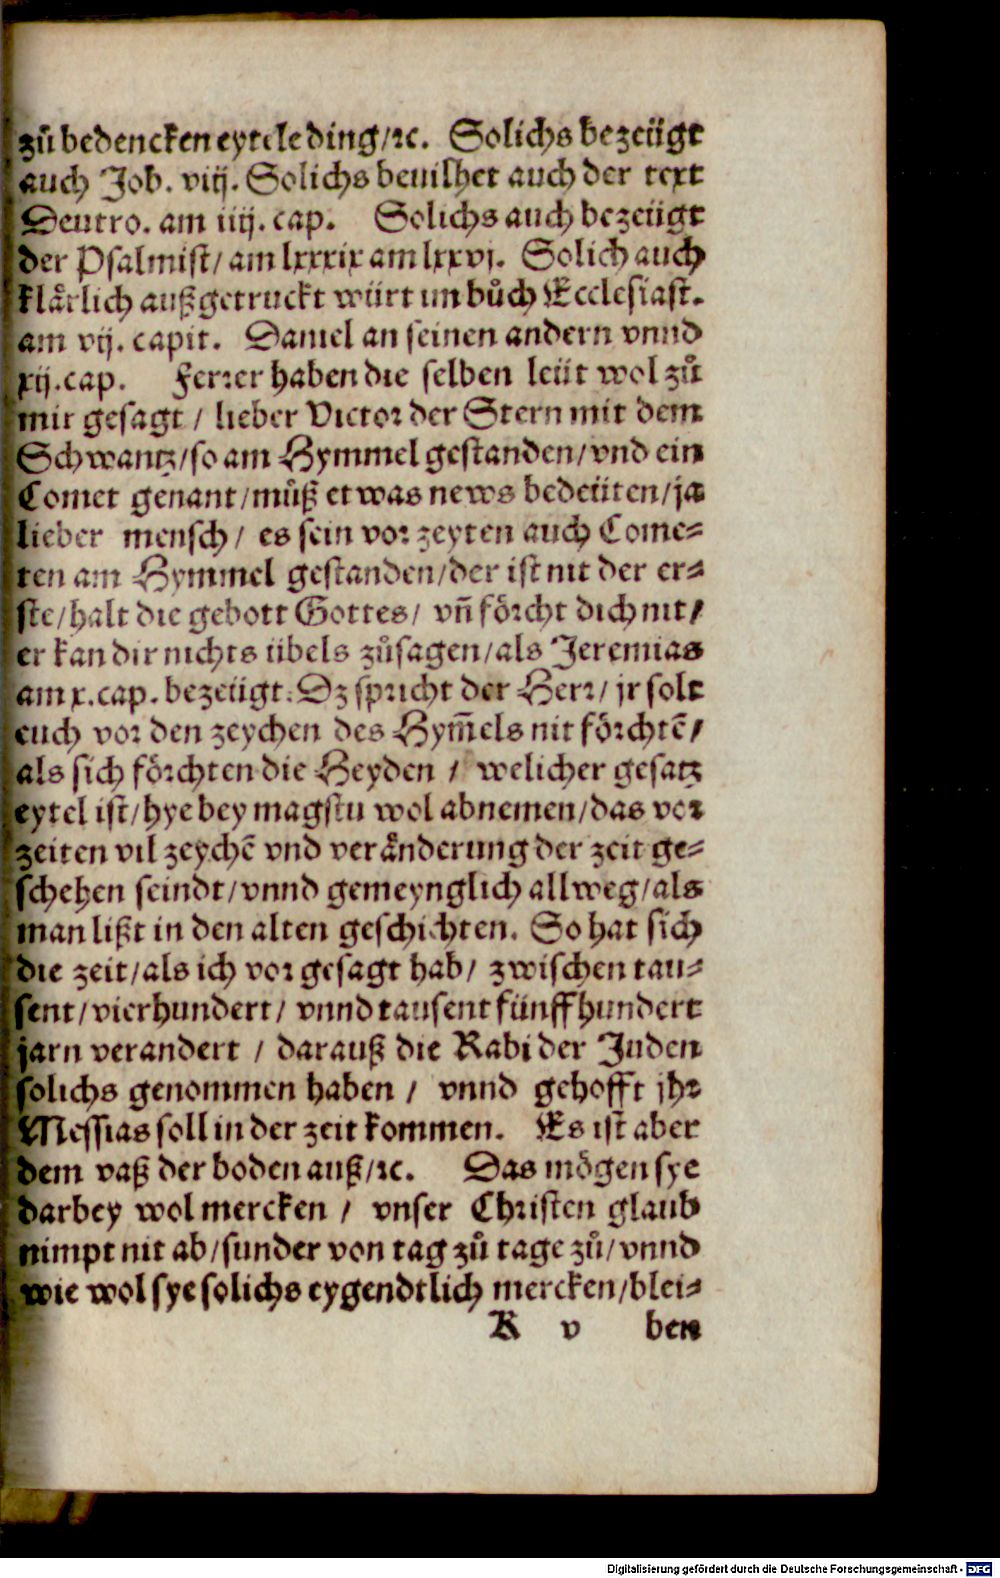 zů bedencken eytele ding/ ꝛc. Solichs bezeügt
auch Job. viij. Solichs beuilhet auch der text
Deutro. am iiij. cap. Solichs auch bezeügt
der Psalmist/ am lxxxix am lxxvj. Solich auch
klaͤrlich außgetruckt würt im bůch Ecclesiast.
am vij. capit. Daniel an seinen andern vnnd
xij. cap. Ferrer haben die selben leüt wol zů
mir gesagt / lieber Victor der Stern mit dem
Schwantz/ so am Hymmel gestanden/ vnd ein
Comet genant/ můß etwas news bedeüten/ ja
lieber mensch / es sein vor zeyten auch Come⸗
ten am Hymmel gestanden/ der ist nit der er⸗
ste/ halt die gebott Gottes/ vñ foͤrcht dich nit/
er kan dir nichts übels zůsagen/ als Jeremias
am x. cap. bezeügt: Dz spricht der Herr/ jr solt
euch vor den zeychen des Hym̃els nit foͤrchtẽ/
als sich foͤrchten die Heyden / welicher gesatz
eytel ist/ hye bey magstu wol abnemen/ das vor
zeiten vil zeychẽ vnd veraͤnderung der zeit ge⸗
schehen seindt/ vnnd gemeynglich allweg/ als
man lißt in den alten geschichten. So hat sich
die zeit/ als ich vor gesagt hab/ zwischen tau⸗
sent/ vierhundert/ vnnd tausent fünffhundert
jarn verandert / darauß die Rabi der Juden
solichs genommen haben / vnnd gehofft jhr
Messias soll in der zeit kommen. Es ist aber
dem vaß der boden auß/ ꝛc. Das moͤgen sye
darbey wol mercken / vnser Christen glaub
nimpt nit ab/ sunder von tag zů tage zů/ vnnd
wie wol sye solichs eygendtlich mercken/ blei⸗
K v ben
Digitalisierung gefördert durch die Deutsche Forschungsgemeinschaft - DFG